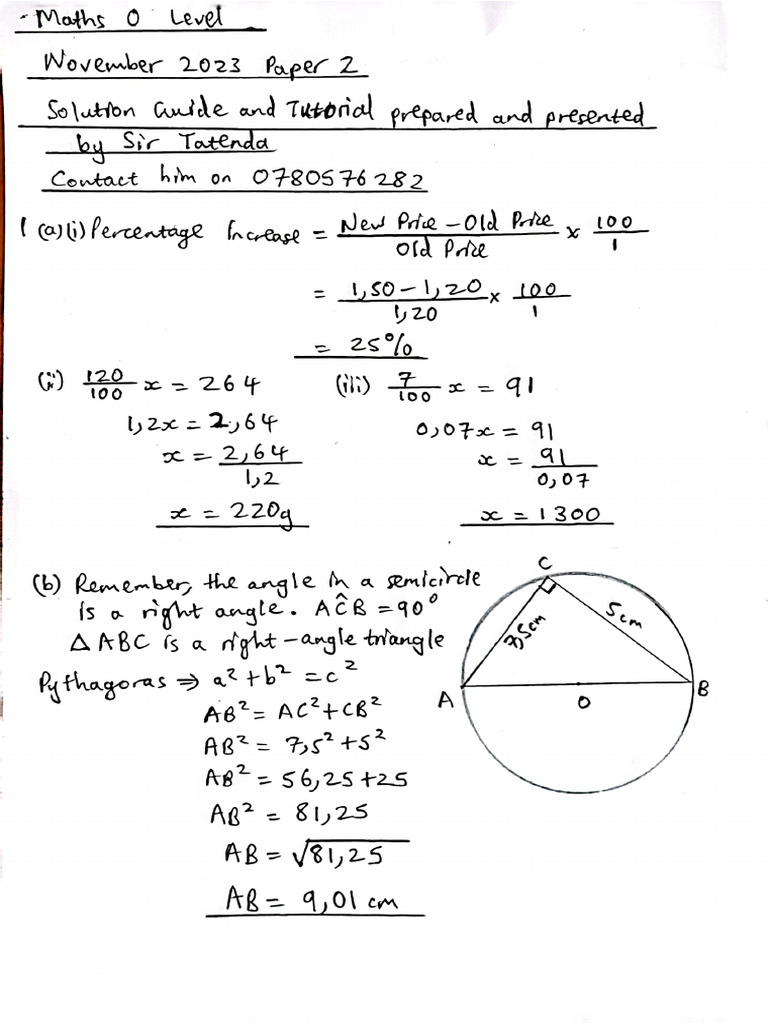 Maths O Level
November 2023 Paper 2
Solution Guide and Tutorial prepared and presented
by Sir Tatenda
Contact him on 0780576282
1 (a)(i) Percentage Increase = New Price – Old Price / Old Price × 100/1
= 1,50 – 1,20 / 1,20 × 100/1
= 25%
(ii) 120/100 x = 264
1,2x = 2,64
x = 2,64/1,2
x = 220g
(iii) 7/100 x = 91
0,07x = 91
x = 91/0,07
x = 1300
(b) Remember, the angle in a semicircle
is a right angle. AĈB = 90°
△ ABC is a right-angle triangle
Pythagoras ⇒ a² + b² = c²
AB² = AC² + CB²
AB² = 7,5² + 5²
AB² = 56,25 + 25
AB² = 81,25
AB = √81,25
AB = 9,01 cm
C
7,5cm
5cm
A
O
B